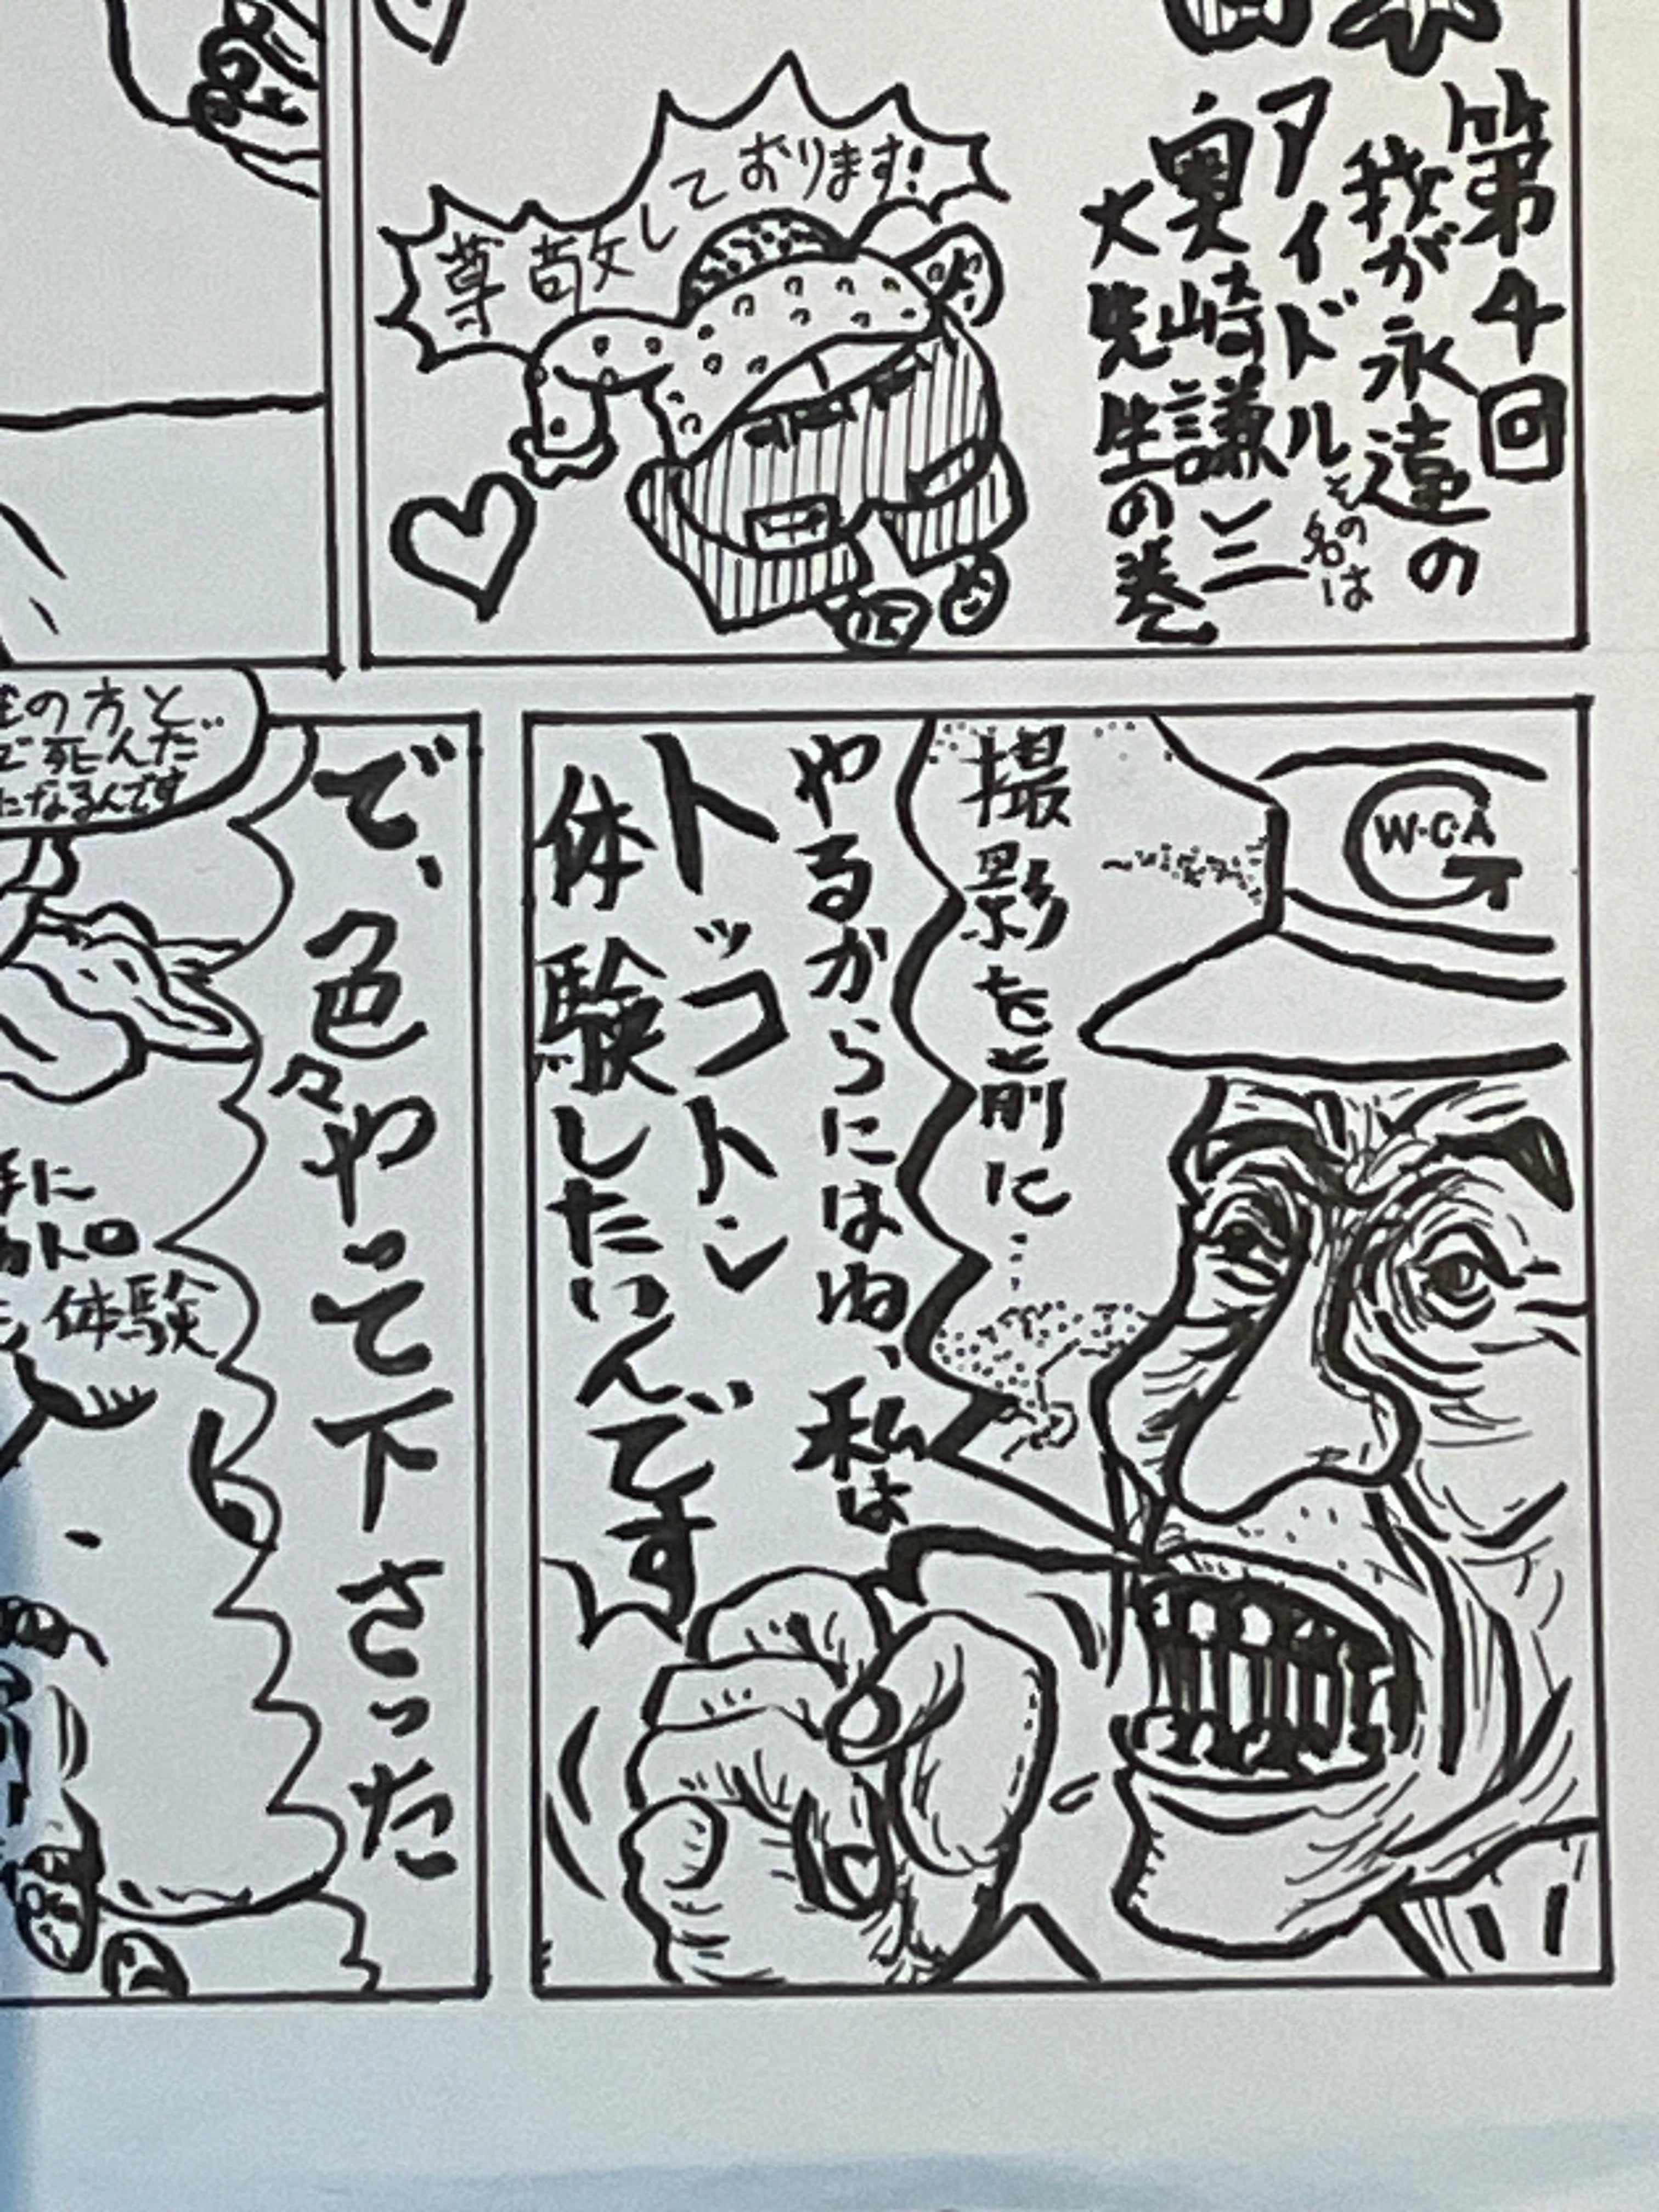 第4回
我が永遠の
アイドル
その
名は
奥崎謙三
大先生の巻
尊敬しております!
W・C・A
G
撮影を前に…
やるからにはね、私は
トッコトン
体験したいんです
で、色々やって下さった
の方と…
で死んだ
になるんです
手に
体験